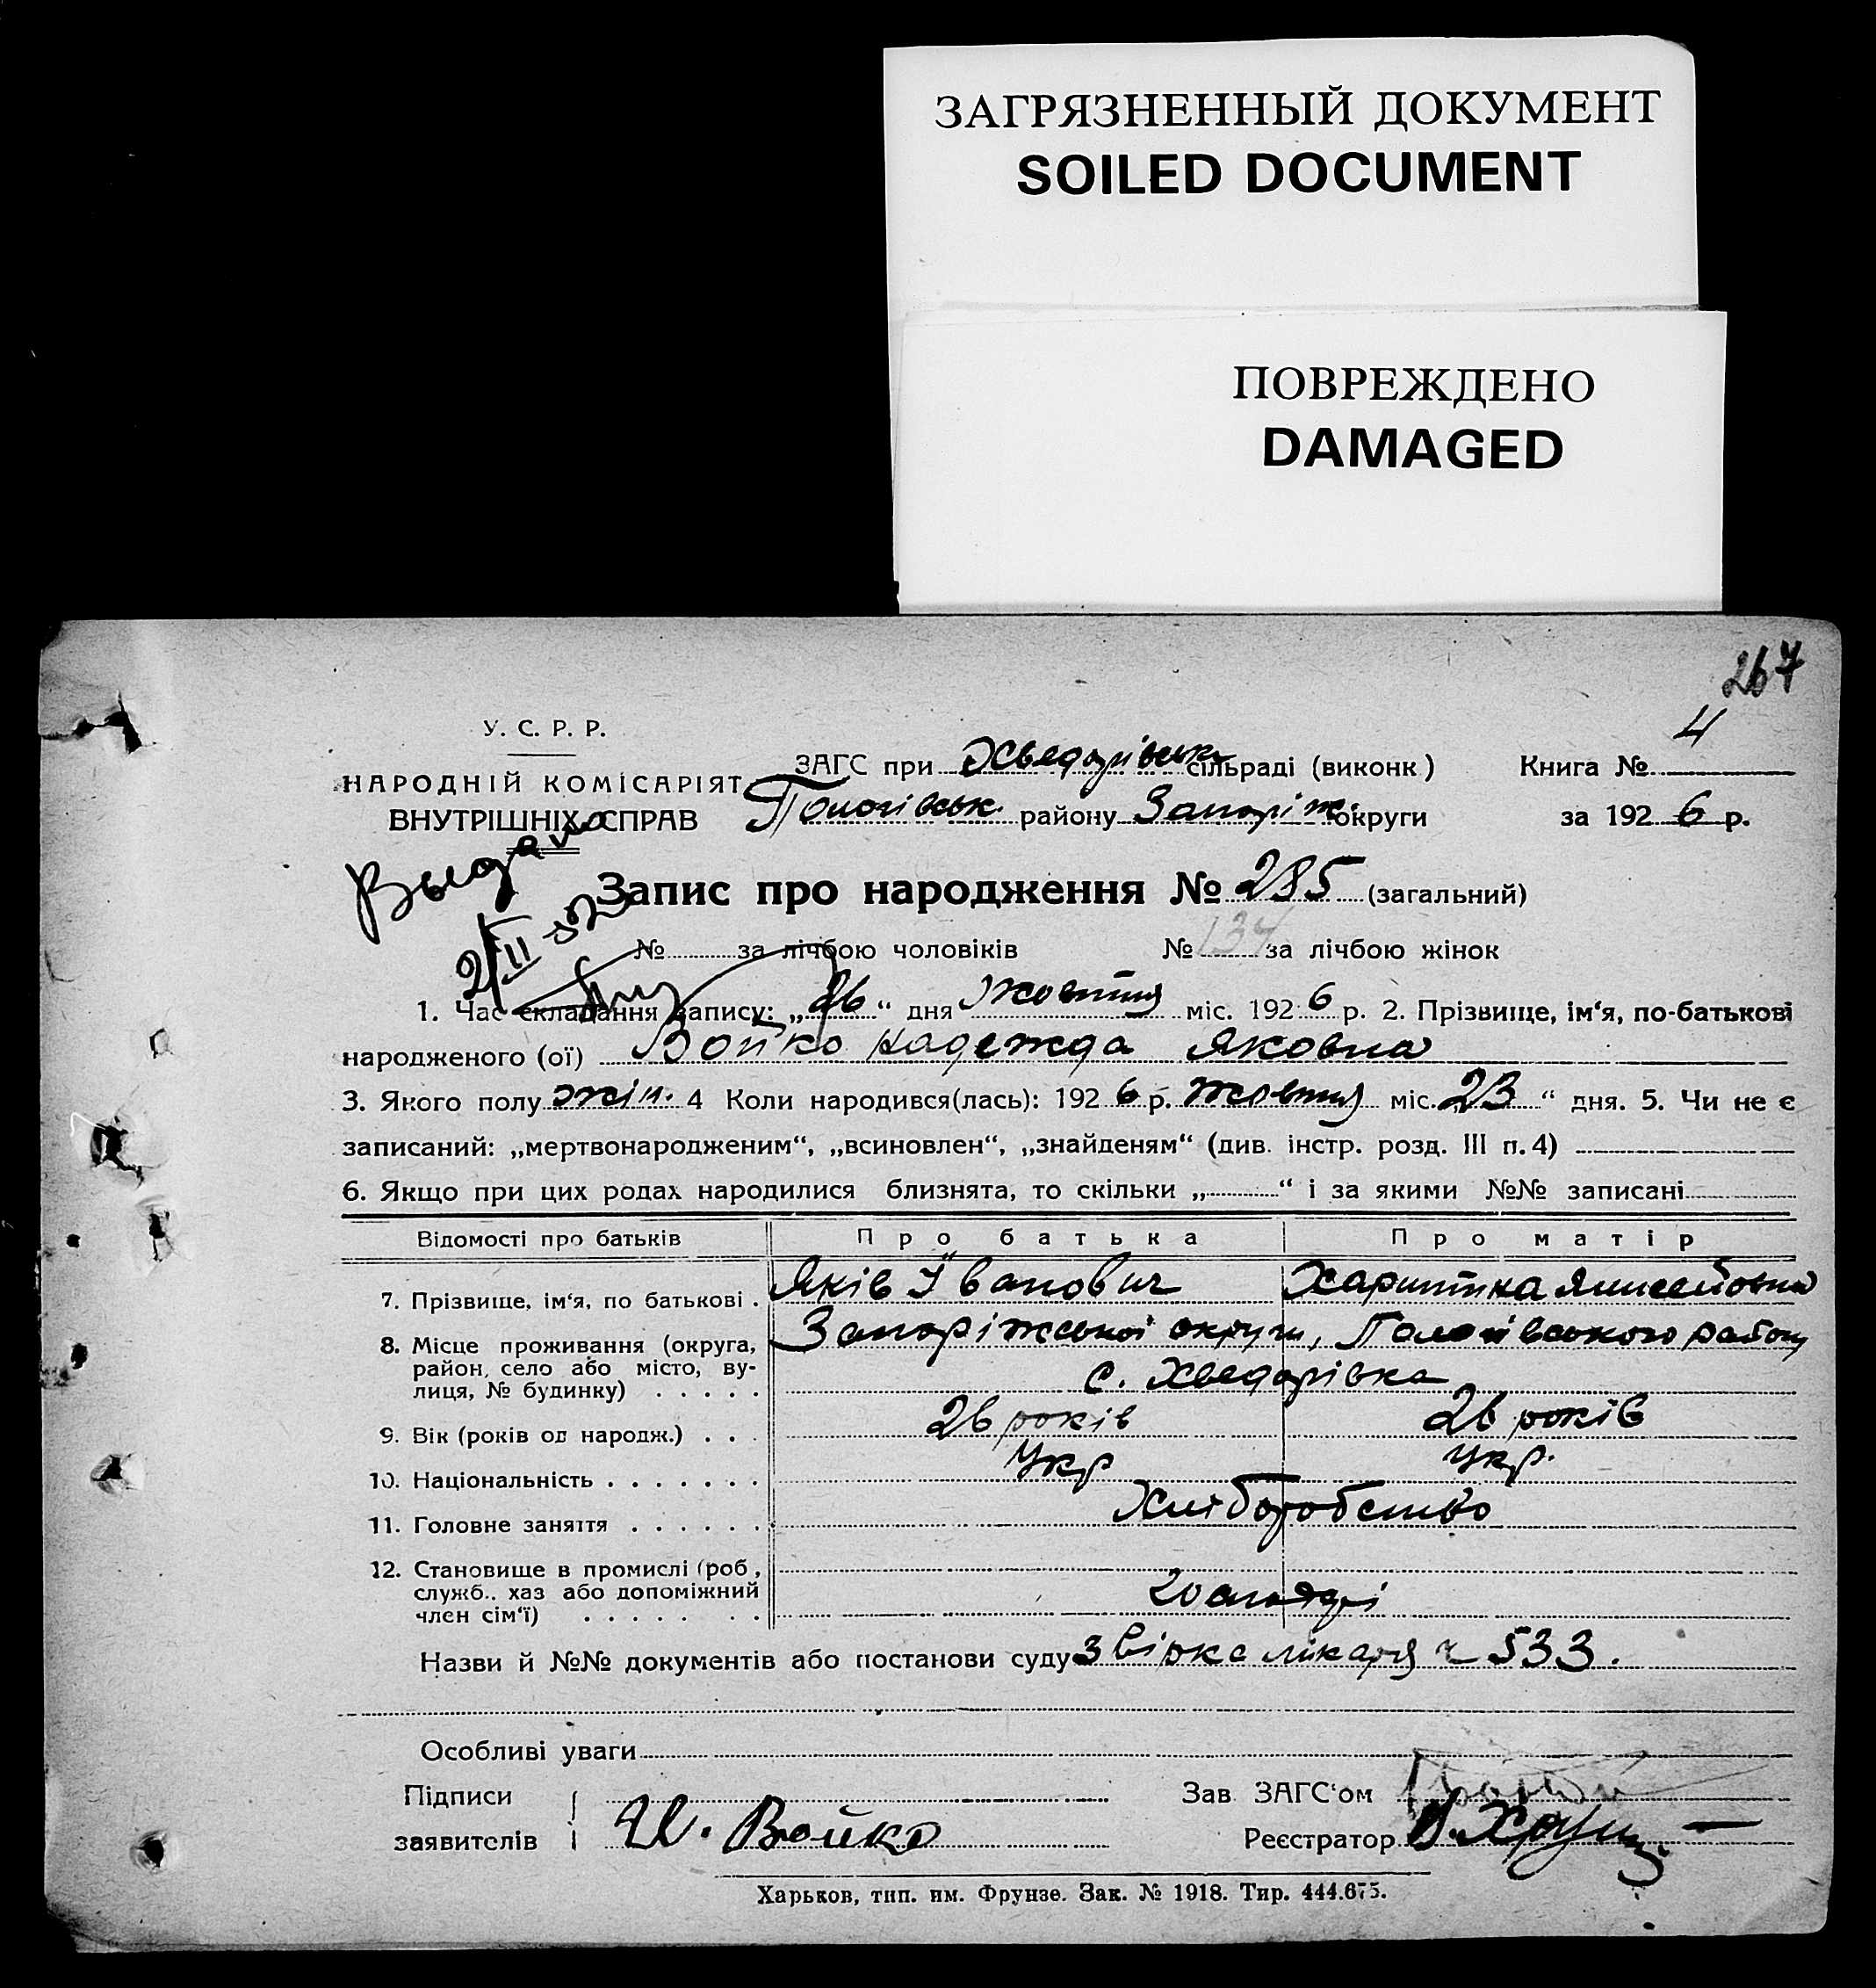 ЗАГРЯЗНЕННЫЙ ДОКУМЕНТ
SOILED DOCUMENT
ПОВРЕЖДЕНО
DAMAGED
267
У. С. Р. Р.
НАРОДНІЙ КОМІСАРІЯТ
ВНУТРІШНІХ СПРАВ
ЗАГС при Хведорівськ сільраді (виконк)
Книга № 4
Пологівськ. району Запоріж. округи
за 1926 р.
Выдано
Запис про народження № 285 (загальний)
2/II 52
№ за лічбою чоловіків № 134 за лічбою жінок
1. Час складання запису: „26“ дня Жовтня міс. 1926 р. 2. Прізвище, ім‘я, по-батькові
народженого (ої) Бойко Надежда Яковна
3. Якого полу жін. 4 Коли народився(лась): 1926 р. Жовтня міс. 23“ дня. 5. Чи не є
записаний: „мертвонародженим“, „всиновлен“, „знайденям“ (див. інстр. розд. III п. 4)
6. Якщо при цих родах народилися близнята, то скільки „ “ і за якими №№ записані
Відомості про батьків Про батька Про матір
7. Прізвище, ім‘я, по батькові . Яків Іванович Харитина
8. Місце проживання (округа, район, село або місто, вулиця, № будинку) . . . . . Запоріжської округи, Пологівського району
с. Хведорівка
9. Вік (років од народж.) . . . 26 років 26 років
10. Національність . . . . . . . Укр Укр.
11. Головне заняття . . . . . . Хліборобство
12. Становище в промислі (роб, служб.. хаз або допоміжний член сім‘ї) . . . . . . .
Назви й №№ документів або постанови суду лікаря ч 533.
Особливі уваги
Підписи
заявителів
И. Бойко
Зав ЗАГС‘ом
Реєстратор
Харьков, тип. им. Фрунзе. Зак. № 1918. Тир. 444.675.